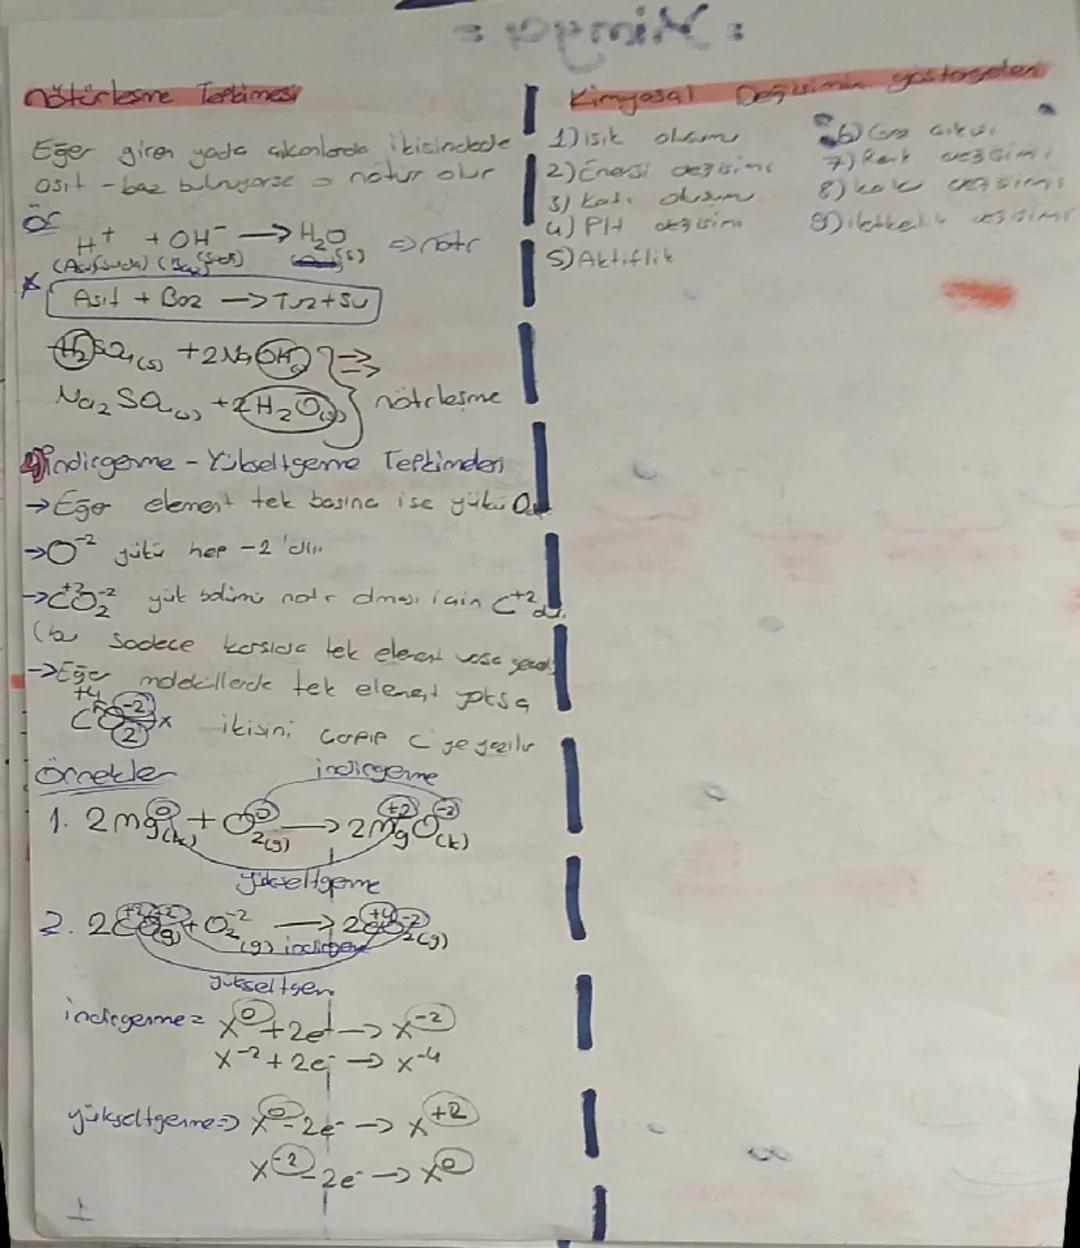 : Kimya :
nötürleşme Tepkimesi
Eğer giren yada çıkanlarda ikisindede
asit - baz bulnuyorse → nötur olur
ÖR
H⁺ + OH⁻ → H₂O ⇒ nötr
* Asit + Baz → Tuz + Su
H₂SO₄(s) + 2NaOH
Na₂SO₄ + 2H₂O(s) } nötrleşme
4) indirgenme - Yükseltgenme Tepkimeleri
→ Eğer element tek başına ise yükü 0
→ O⁻² yükü hep -2 'dir
→ C⁺²O₂⁻² yük nötr olması için C⁺²
sadece karsıda tek element varsa
→ Eğer moleküllerde tek element yoksa
+4 C O -2 2 x ikisini çarpıp C ye yazılır
Örnekler
indirgenme
1. 2Mg⁰(k) + O₂⁰(g) → 2Mg⁺²O⁻²(k)
yükseltgenme
2. 2CO(g) + O₂⁻²(g) → 2C⁺⁴O₂⁻²(g)
indirgenme
yükseltgen
indirgenme = X⁰ + 2e⁻ → X⁻²
X⁻² + 2e⁻ → X⁻⁴
yükseltgenme ⇒ X⁰ - 2e⁻ → X⁺²
X⁻² - 2e⁻ → X⁰
Kimyasal Değişimin göstergeleri
1) ısık olusumu
2) Enerji değisimi
3) Katı olusumu
4) PH değisimi
5) Aktiflik
6) Gaz çıkısı
7) Renk değisimi
8) koku değisimi
9) iletkenlik değisimi